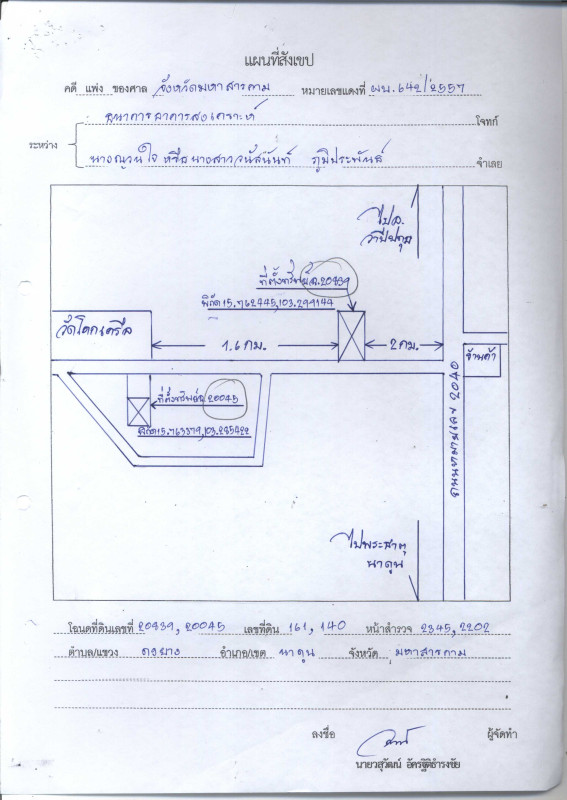 แผนที่สังเขป
คดี แพ่ง ของศาล จังหวัดมหาสารคาม หมายเลขแดงที่ ผบ.642/2557
ธนาคารอาคารสงเคราะห์ โจทก์
ระหว่าง
นางญวนใจ หรือ นางสาววนัสนันท์ ภูมิประพันธ์ จำเลย
ไปอ.
วาปีปทุม
ที่ตั้งทรัพย์ฉ.20839
พิกัด15.762445,103.299144
วัดโคกเครือ
1.6 กม.
2 กม.
ร้านค้า
ถนนหมายเลข 2040
ที่ตั้งทรัพย์ฉ.20045
ไปพระธาตุ
นาดูน
โฉนดที่ดินเลขที่ 20839, 20045 เลขที่ดิน 161, 140 หน้าสำรวจ 2345, 2202
ตำบล/แขวง ดงยาง อำเภอ/เขต นาดูน จังหวัด มหาสารคาม
ลงชื่อ ผู้จัดทำ
นายวสุวัฒน์ อัครฐิติธำรงชัย